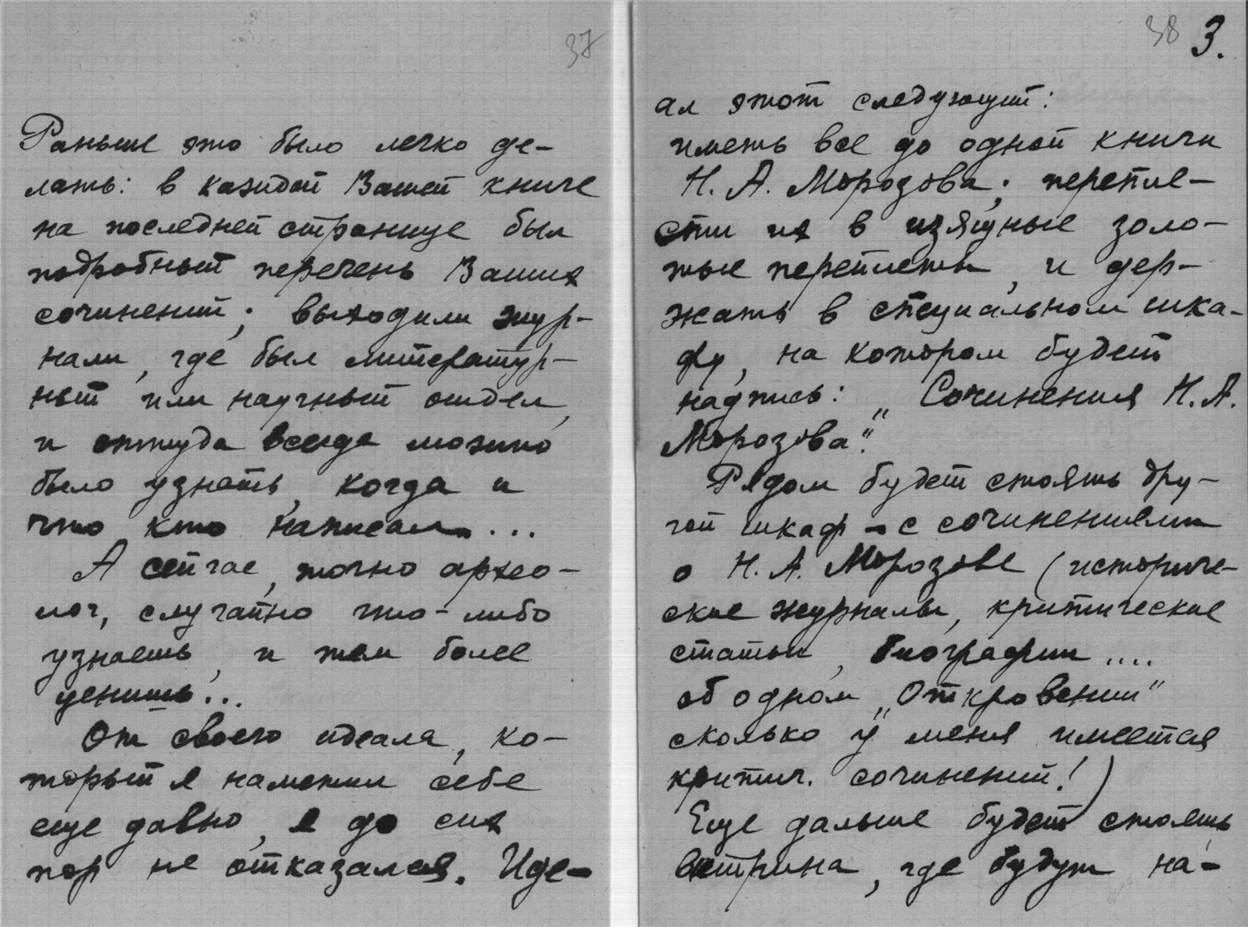 37
Раньше это было легко де-
лать: в каждой Вашей книге
на последней странице был
подробный перечень Ваших
сочинений; выходили жур-
налы, где был литератур-
ный или научный отдел,
и оттуда всегда можно
было узнать, когда и
что кто написал...
А сейчас, точно архео-
лог, случайно что-либо
узнаешь, и тем более
ценишь!..
От своего идеала, ко-
торый я наметил себе
еще давно, я до сих
пор не отказался. Иде-
38 3.
ал этот следующий:
иметь все до одной книги
Н. А. Морозова, перепле-
сти их в изящные золо-
тые переплеты, и дер-
жать в специальном шка-
фу, на котором будет
надпись: "Сочинения Н. А.
Морозова".
Рядом будет стоять дру-
гой шкаф - с сочинениями
о Н. А. Морозове (историче-
ские журналы, критические
статьи, биографии....
об одном "Откровении"
сколько у меня имеется
критич. сочинений!)
Еще дальше будет стоять
витрина, где будут на-